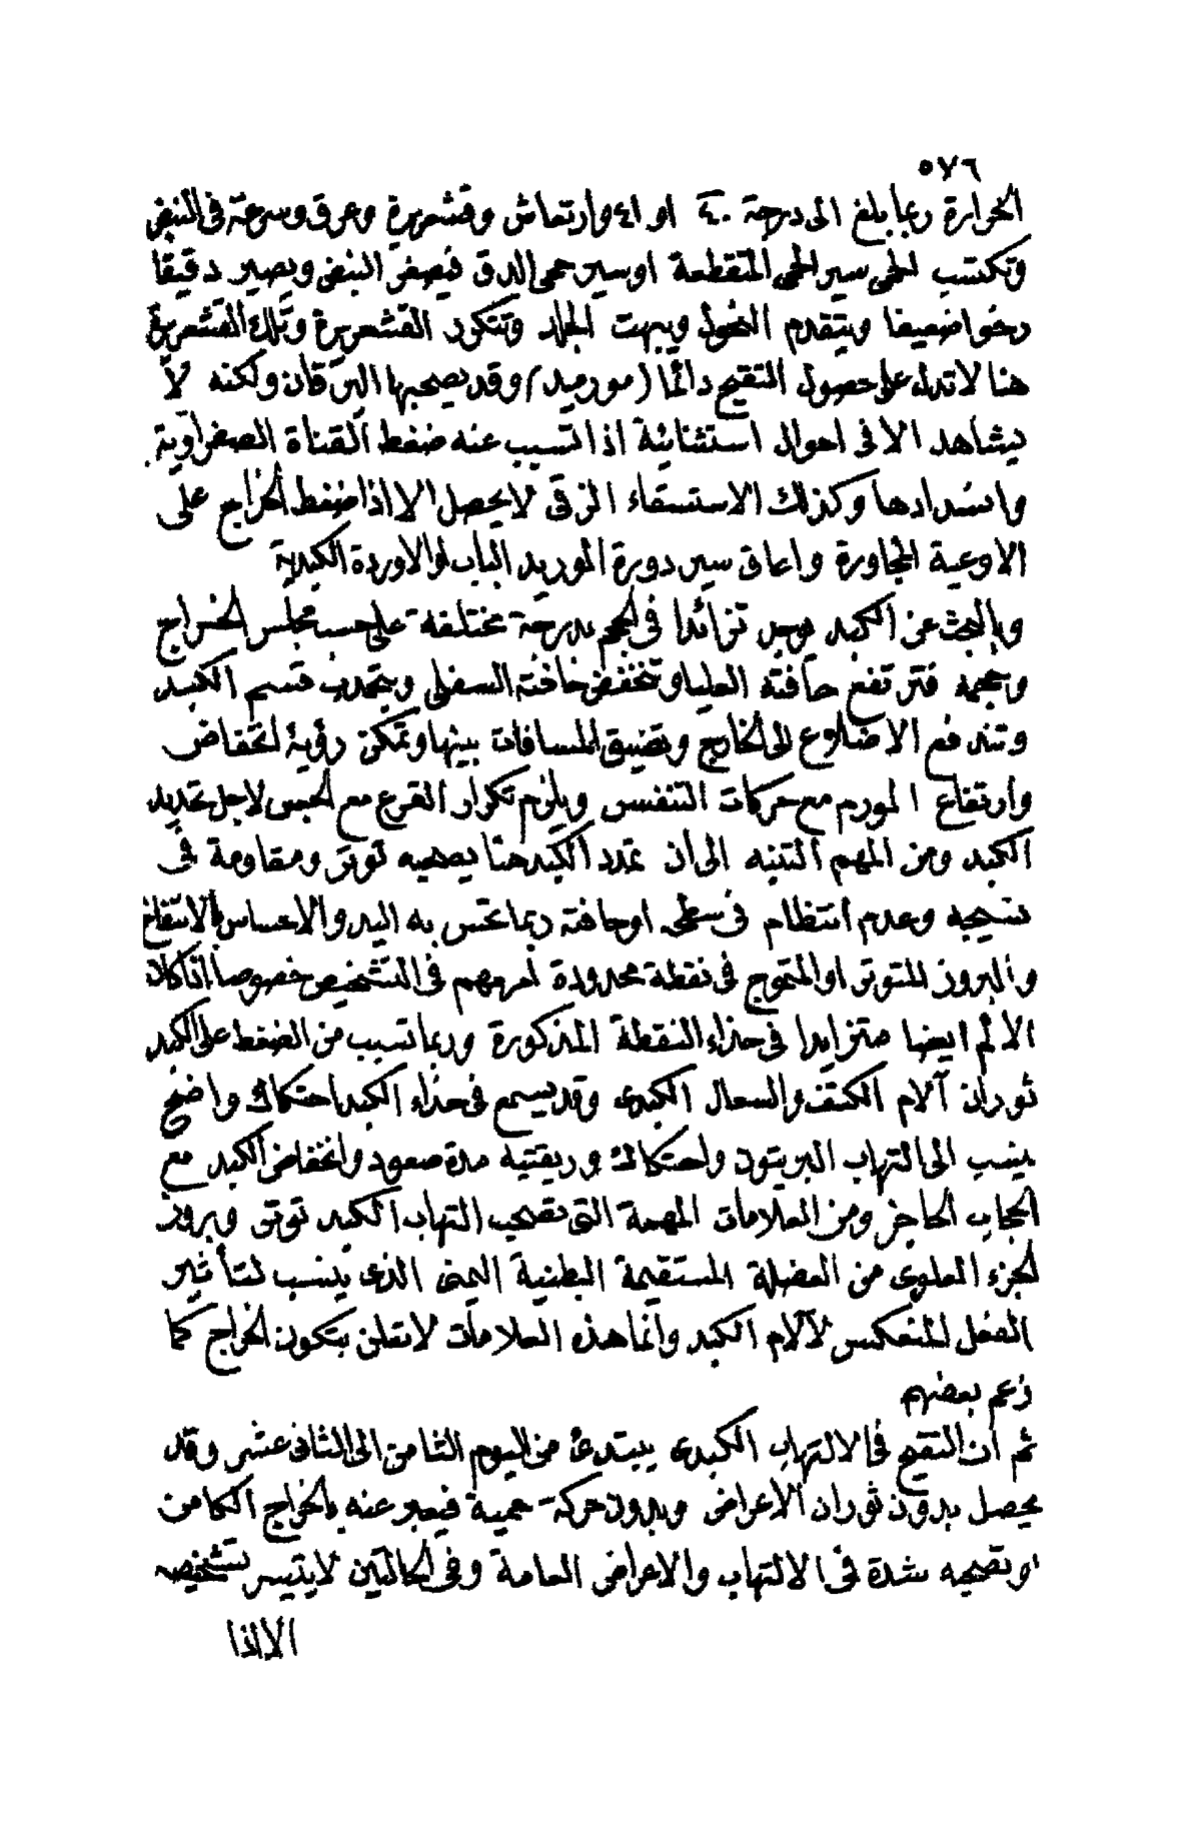 ٥٧٦
الحرارة ربما بلغ الى درجة ٤٠ او ٤١ وارتعاش وقشعريرة وعرق وسرعة فى النبض
وتكتسب الحمى سير الحمى المتقطعة او سير حمى الدق فيصغر النبض ويصير دقيقا
رخوا ضعيفا ويتقدم النحول ويبهت الجلد وتتكرر القشعريرة وتلك القشعريرة
هنا لاتدل على حصول التقيح دائما (موريد) وقد يصحبها اليرقان ولكنه لا
يشاهد الا فى احوال استثنائية اذا تسبب عنه ضغط القناة الصفراوية
وانسدادها وكذلك الاستسقاء الزقى لا يحصل الا اذا ضغط الخراج على
الاوعية المجاورة واعاق سير دورة الوريد الباب او الاوردة الكبدية
وبالبحث عن الكبد يوجد تزائدا فى الحجم بدرجة مختلفة على حسب مجلس الخراج
وحجمه فترتفع حافته العليا وتنخفض حافته السفلى ويتحدب قسم الكبد
وتندفع الاضلاع الى الخارج وتضيق المسافات بينها ويمكن رؤية انخفاض
وارتفاع الورم مع حركات التنفس ويلزم تكرار القرع مع الجس لاجل تحديد
الكبد ومن المهم التنبه الى ان تمدد الكبد هنا يصحبه توتر ومقاومة فى
نسيجه وعدم انتظام فى سطحه او حافته ربما تحس به اليد والاحساس بالانتفاخ
والبروز المتوتر او المتموج فى نقطة محدودة امر مهم فى التشخيص خصوصا اذا كان
الألم ايضا متزايدا فى حذاء النقطة المذكورة وربما تسبب من الضغط على الكبد
ثوران آلام الكتف والسعال الكبدى وقد يسمع فى حذاء الكبد احتكاك واضح
ينسب الى التهاب البريتون واحتكاك وريقتيه مدة صعود وانخفاض الكبد مع
الحجاب الحاجز ومن العلامات المهمة التى تصحب التهاب الكبد توتر وبروز
الجزء العلوى من العضلة المستقيمة البطنية اليمنى الذى ينسب لتأثير
الفعل المنعكس لآلام الكبد وانما هذه العلامات لا تعلن بتكون الخراج كما
زعم بعضهم
ثم ان التقيح فى الالتهاب الكبدى يبتدئ من اليوم الثامن الى الثانى عشر وقد
يحصل بدون ثوران الاعراض وبدون حركة حمية فيعبر عنه بالخراج الكامن
او تصحبه شدة فى الالتهاب والاعراض العامة وفى الحالتين لا يتيسر تشخيصه
الا اذا